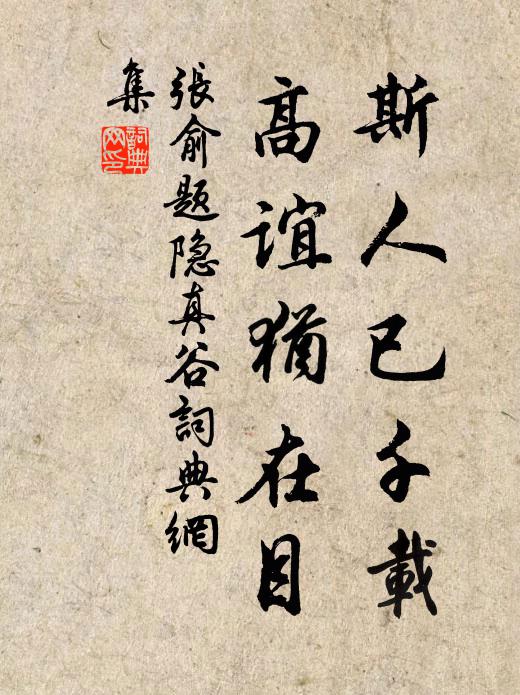 斯人已千載
高誼猶在目
張俞題隐真谷詞典網
集
詞典
网印